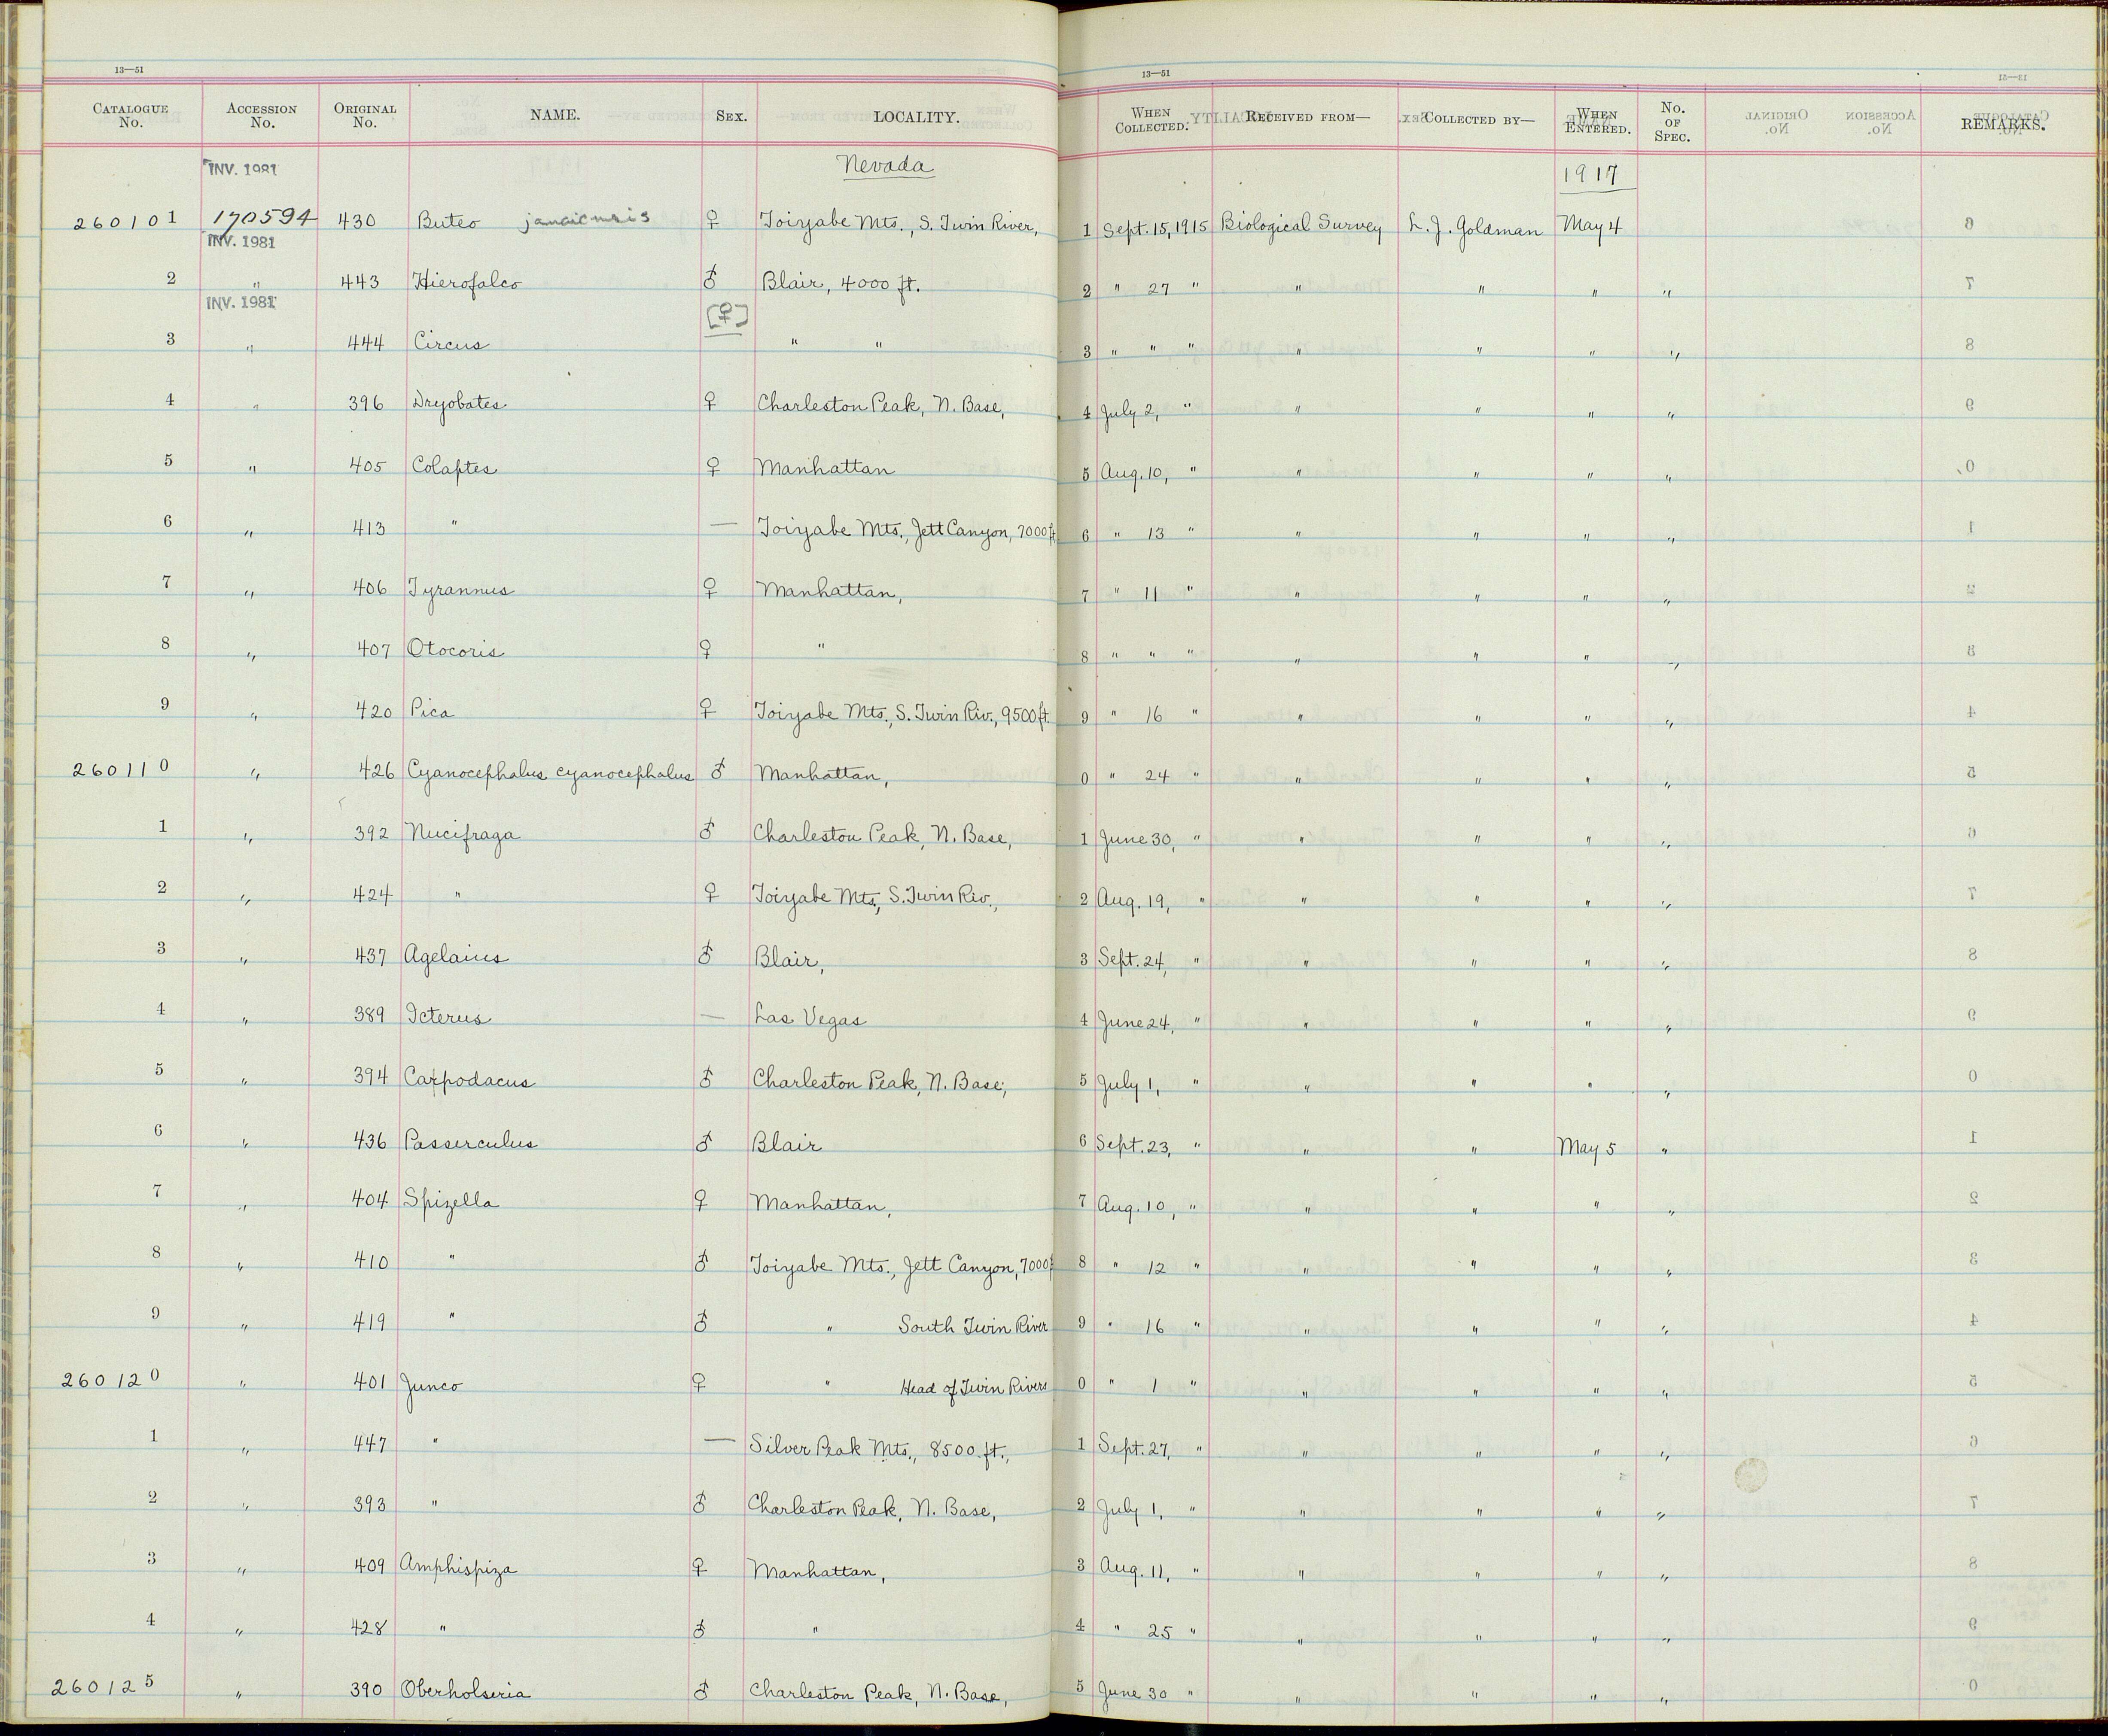 13—51 13—51
CATALOGUE No. ACCESSION No. ORIGINAL No. NAME. SEX. LOCALITY. WHEN COLLECTED. RECEIVED FROM— COLLECTED BY— WHEN ENTERED. No. OF SPEC. REMARKS.
INV. 1981 Nevada 1917
260101 170594 430 Buteo jamaicensis ♀ Toiyabe Mts., S. Twin River, 1 Sept. 15, 1915 Biological Survey L. J. Goldman May 4
INV. 1981
2 " 443 Hierofalco ♂ Blair, 4000 ft. 2 " 27 " " " " "
INV. 1981 [♀]
3 " 444 Circus " " 3 " " " " " " "
4 " 396 Dryobates ♀ Charleston Peak, N. Base, 4 July 2, " " " " "
5 " 405 Colaptes ♀ Manhattan 5 Aug. 10, " " " " "
6 " 413 " — Toiyabe Mts., Jett Canyon, 7000 ft 6 " 13 " " " " "
7 " 406 Tyrannus ♀ Manhattan, 7 " 11 " " " " "
8 " 407 Otocoris ♀ " 8 " " " " " " "
9 " 420 Pica ♀ Toiyabe Mts., S. Twin Riv., 9500 ft. 9 " 16 " " " " "
260110 " 426 Cyanocephalus cyanocephalus ♂ Manhattan, 0 " 24 " " " " "
1 " 392 Nucifraga ♂ Charleston Peak, N. Base, 1 June 30, " " " " "
2 " 424 " ♀ Toiyabe Mts., S. Twin Riv., 2 Aug. 19, " " " " "
3 " 437 Agelaius ♂ Blair, 3 Sept. 24, " " " " "
4 " 389 Icterus — Las Vegas 4 June 24, " " " " "
5 " 394 Carpodacus ♂ Charleston Peak, N. Base, 5 July 1, " " " " "
6 " 436 Passerculus ♂ Blair 6 Sept. 23, " " " May 5 "
7 " 404 Spizella ♀ Manhattan, 7 Aug. 10, " " " " "
8 " 410 " ♂ Toiyabe Mts., Jett Canyon, 7000 f 8 " 12 " " " " "
9 " 419 " ♂ " South Twin River 9 " 16 " " " " "
260120 " 401 Junco ♀ " Head of Twin Rivers 0 " 1 " " " " "
1 " 447 " — Silver Peak Mts., 8500 ft., 1 Sept. 27, " " " " "
2 " 393 " ♂ Charleston Peak, N. Base, 2 July 1, " " " " "
3 " 409 Amphispiza ♀ Manhattan, 3 Aug. 11, " " " " "
4 " 428 " ♂ " 4 " 25 " " " " "
260125 " 390 Oberholseria ♂ Charleston Peak, N. Base, 5 June 30 " " " " "